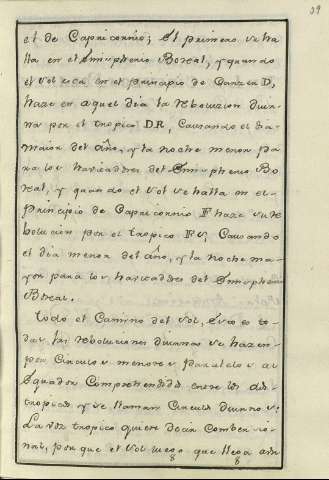 39
el de Capricornio; El primero se ha
lla en el Emispherio Boreal, y quando
el Sol esta en el principio de Cancer D,
haze en aquel dia la rebolucion diur
na por el tropico DR, Causando el dia
maior del año, y la noche menor pa
ra los havitadores del Emispherio Bo
real, y quando el Sol se halla en el
principio de Capricornio F haze su re
bolucion por el tropico FS, Causando
el dia menor del año, y la noche ma
yor para los havitadores del Emispherio
Boreal.
Todo el Camino del Sol, es to
das las reboluciones diurnas se hazen
por Circulos menores paralelos al
Equador Comprehendido entre los dos
tropicos y se llaman Circulos diurnos
La voz tropico quiere decir Comber sio
nes, por que el Sol luego que llega a